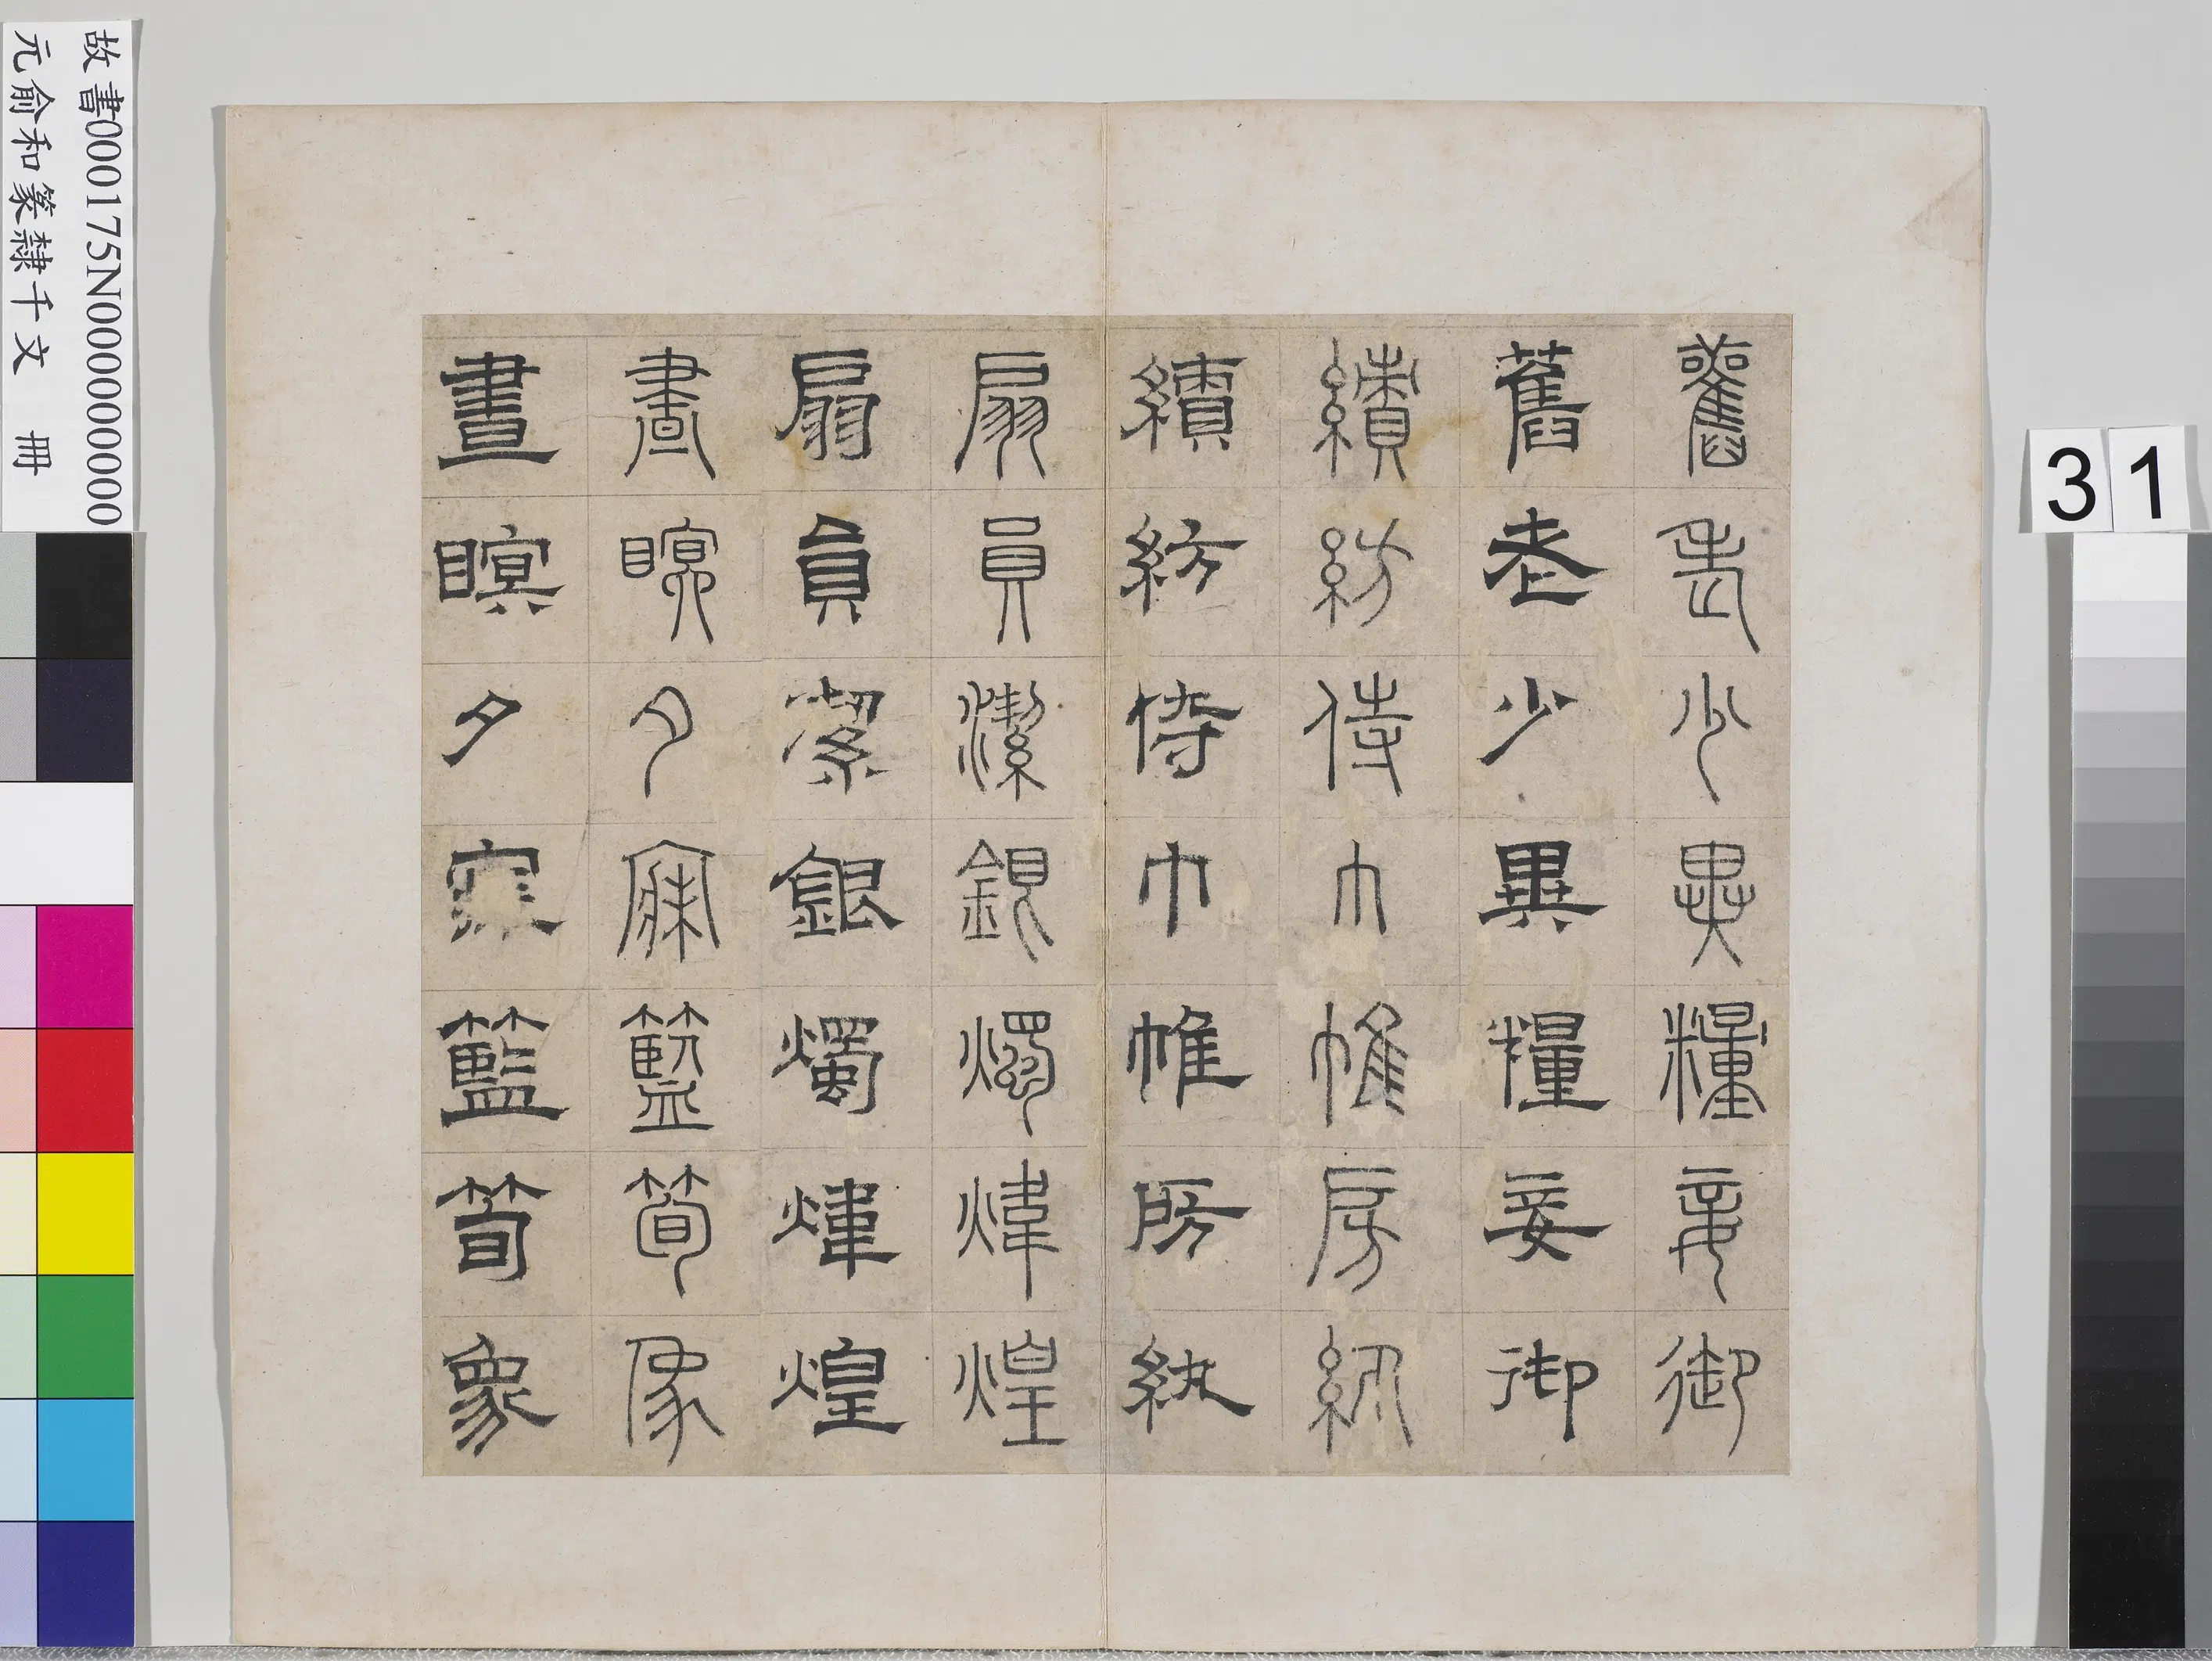 舊老少異糧妾御
舊老少異糧妾御
績紡侍巾帷房紈
績紡侍巾帷房紈
扇員潔銀燭煒煌
扇員潔銀燭煒煌
晝瞑夕寐籃筍像
晝瞑夕寐籃筍象
故書000175N000000000000
元俞和篆隸千文 冊
31